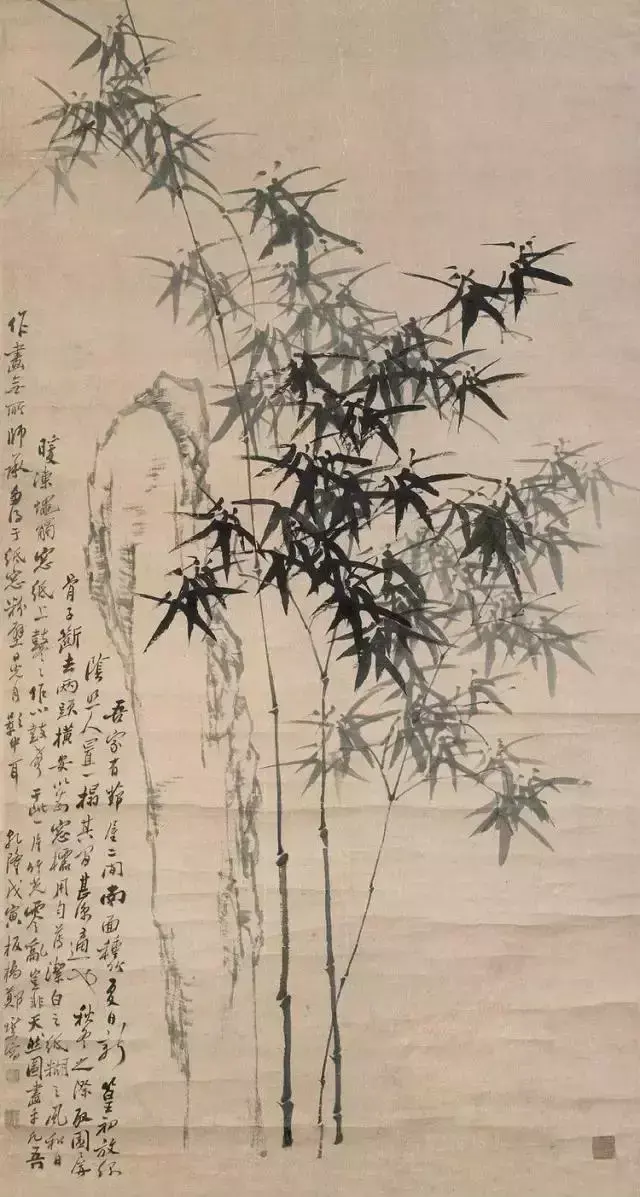 吾家有茅屋二間南面種竹夏日新篁初放綠
陰照人置一榻其間甚涼適也秋冬之際取圍屏
骨子斷去兩頭橫安以為窓櫺用勻薄潔白之紙糊之風和日
暖凍蠅觸窓紙上鼕々作小鼓聲于此一片竹光零亂豈非天然圖畫乎凡吾
作畫無所師承多得于紙窓粉壁日光月影中耳乾隆戊寅板橋鄭燮